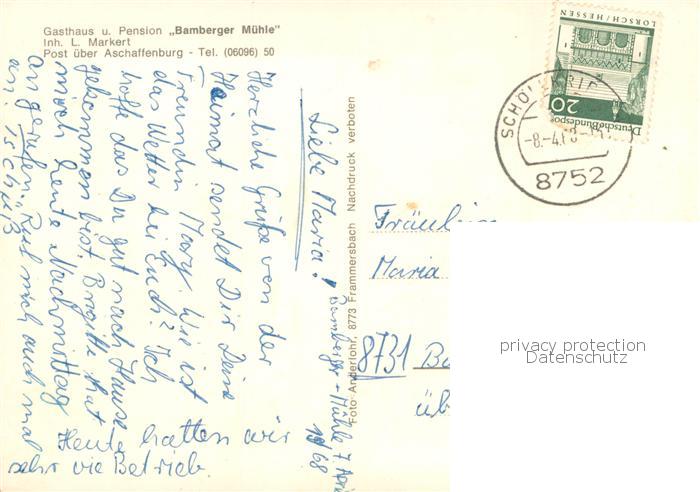 Gasthaus u. Pension „Bamberger Mühle"
Inh. L. Markert
Post über Aschaffenburg - Tel. (06096) 50
Bamberger-Mühle 7. April
1968
Liebe Maria!
Herzliche Grüße von der
Heimat sendet Dir Deine
Freundin Mary. Wie ist
das Wetter bei Euch? Ich
hoffe das Du gut nach Hause
gekommen bist. Brigitte hat
mich heute Nachmittag
angerufen. Ruf mich auch mal
an! Tschüß
Heute hatten wir
sehr vie Betrieb.
Foto Anderlohr, 8773 Frammersbach Nachdruck verboten
LORSCH/HESSEN
20
Deutsche Bundespost
SCHÖLLKRIP
-8.-4.68-
8752
Fräulein
Maria
8731
üb
privacy protection
Datenschutz